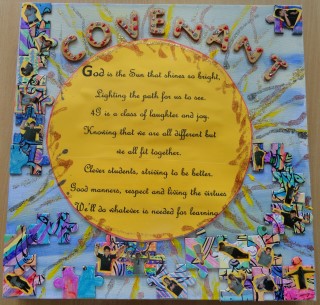 COVENANT
God is the Sun that shines so bright,
Lighting the path for us to see.
4G is a class of laughter and joy.
Knowing that we are all different but
we all fit together.
Clever students, striving to be better.
Good manners, respect and living the virtues.
We'll do whatever is needed for learning.